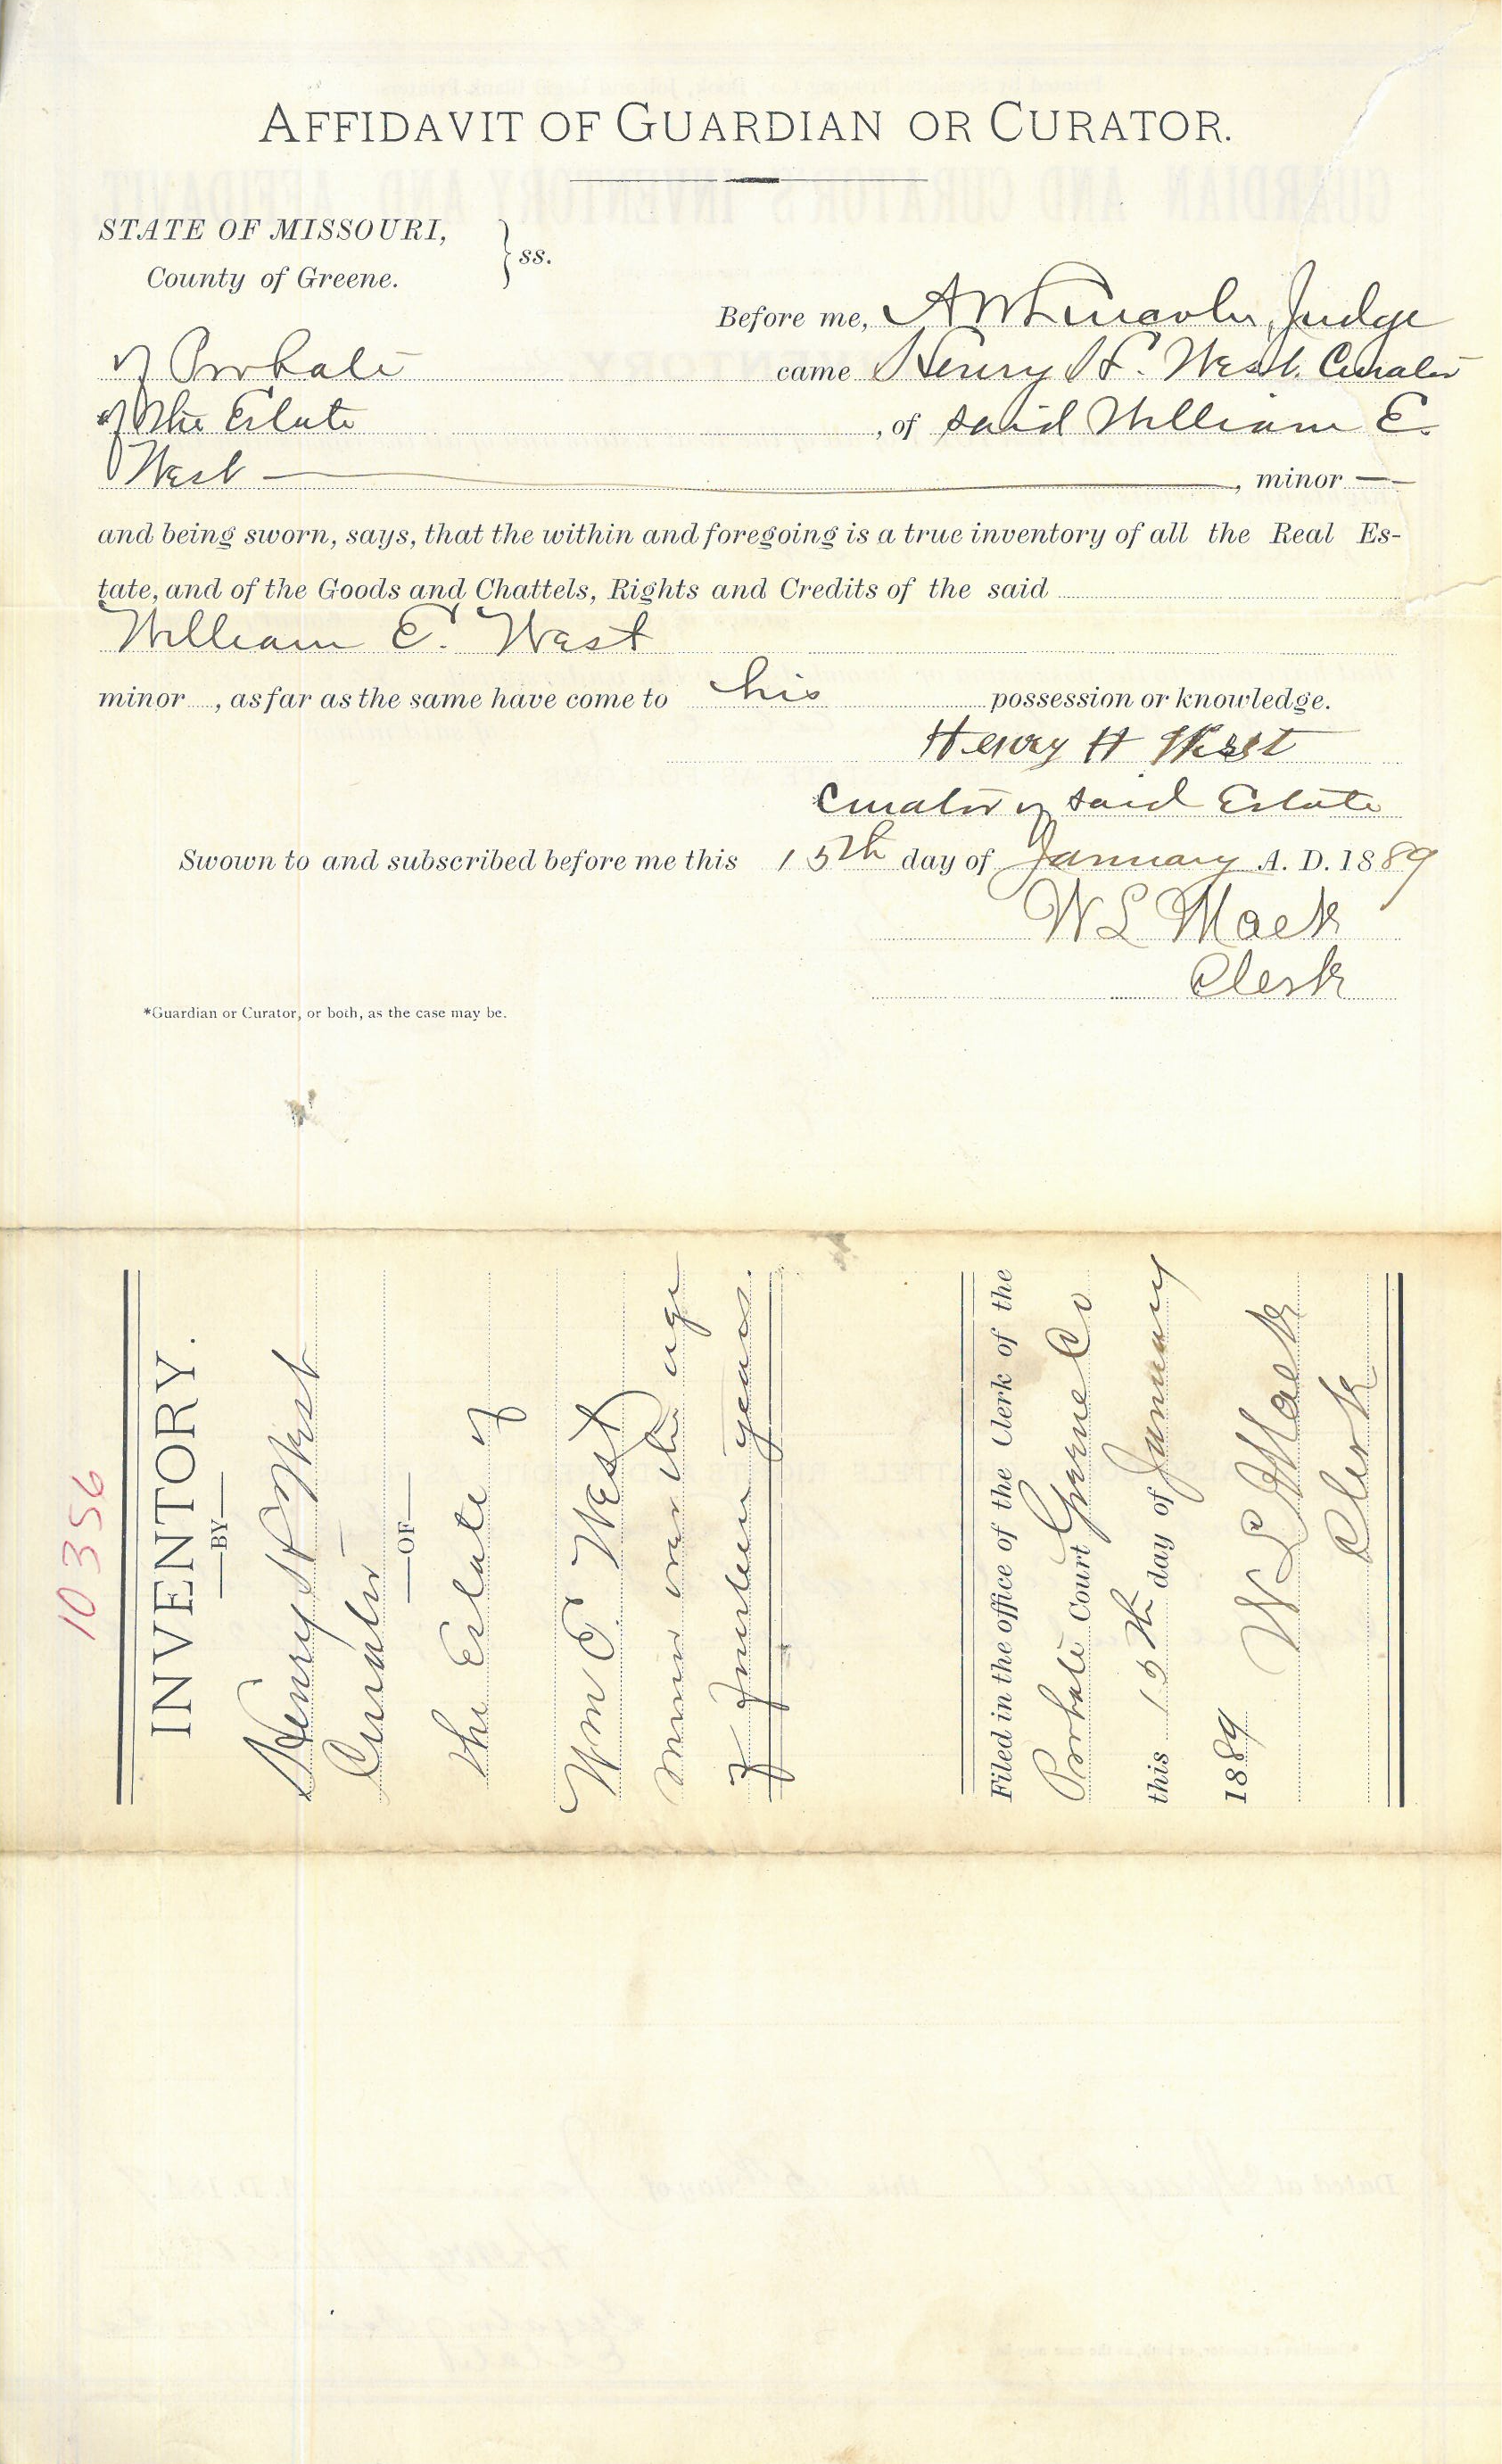 AFFIDAVIT OF GUARDIAN OR CURATOR.
STATE OF MISSOURI,
County of Greene. } ss.
Before me, A W Lincoln, Judge
of Probate came Henry H. West. Curator
*of the Estate , of said William E.
West , minor
and being sworn, says, that the within and foregoing is a true inventory of all the Real Es-
tate, and of the Goods and Chattels, Rights and Credits of the said
William E. West
minor , as far as the same have come to his possession or knowledge.
Henry H West
Curator of said Estate
Swown to and subscribed before me this 15th day of January A. D. 1889
W L Mack
Clerk
*Guardian or Curator, or both, as the case may be.
10356
INVENTORY.
—BY—
Henry H West
Curator
—OF—
the Estate of
Wm E. West
minor over the age
of fourteen years.
Filed in the office of the Clerk of the
Probate Court Greene Co
this 15th day of January
1889
W L Mack
Clerk